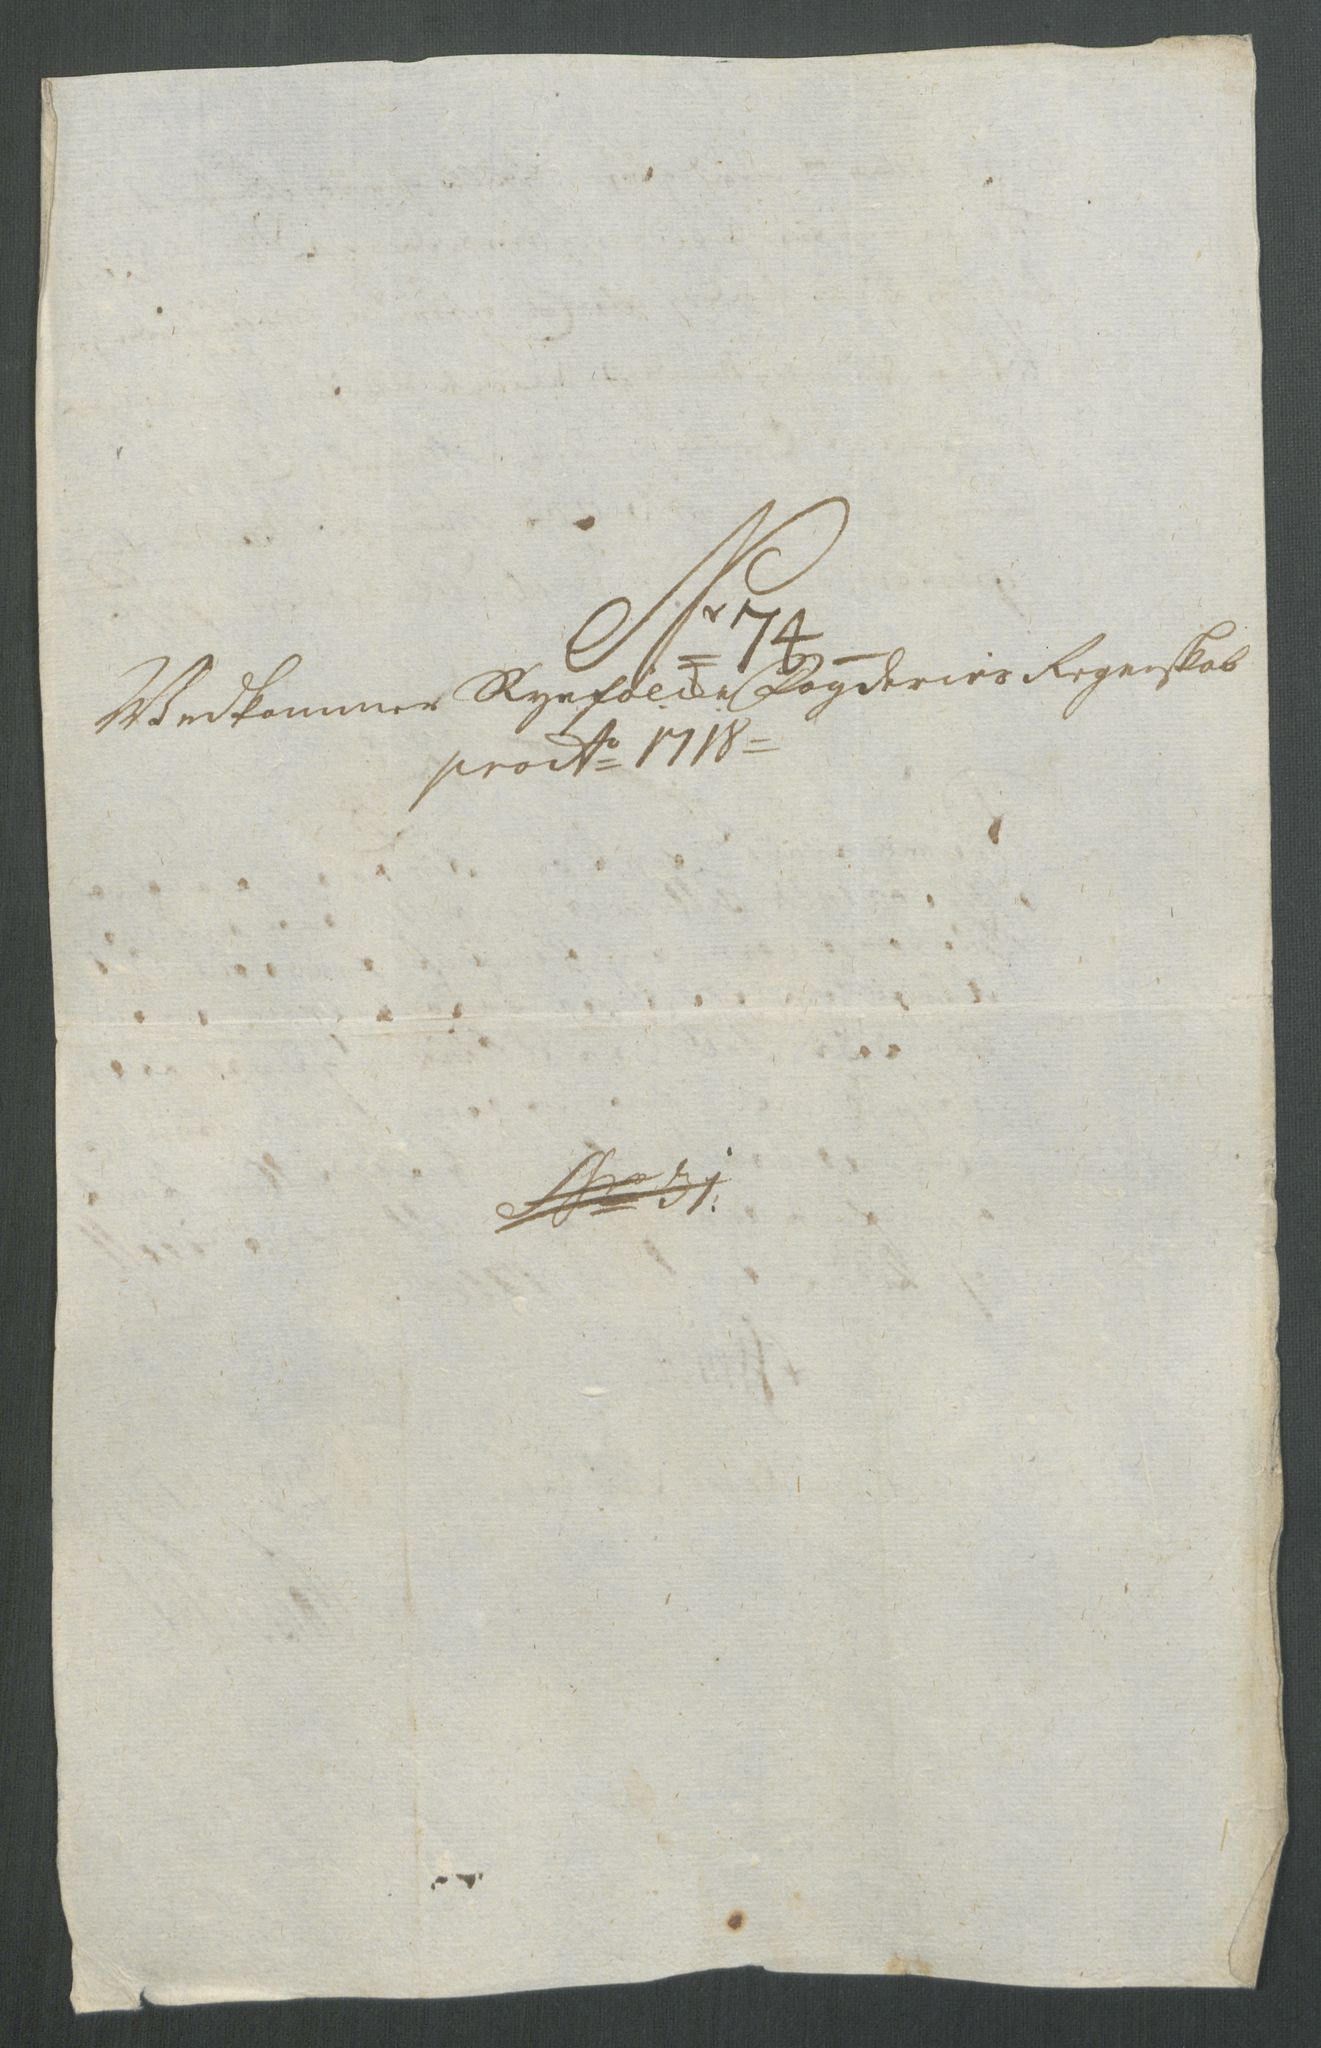 Nr 74
Vedkommer Ryefölche Fogderies Regenskab
pro Ao 1718
No 31.